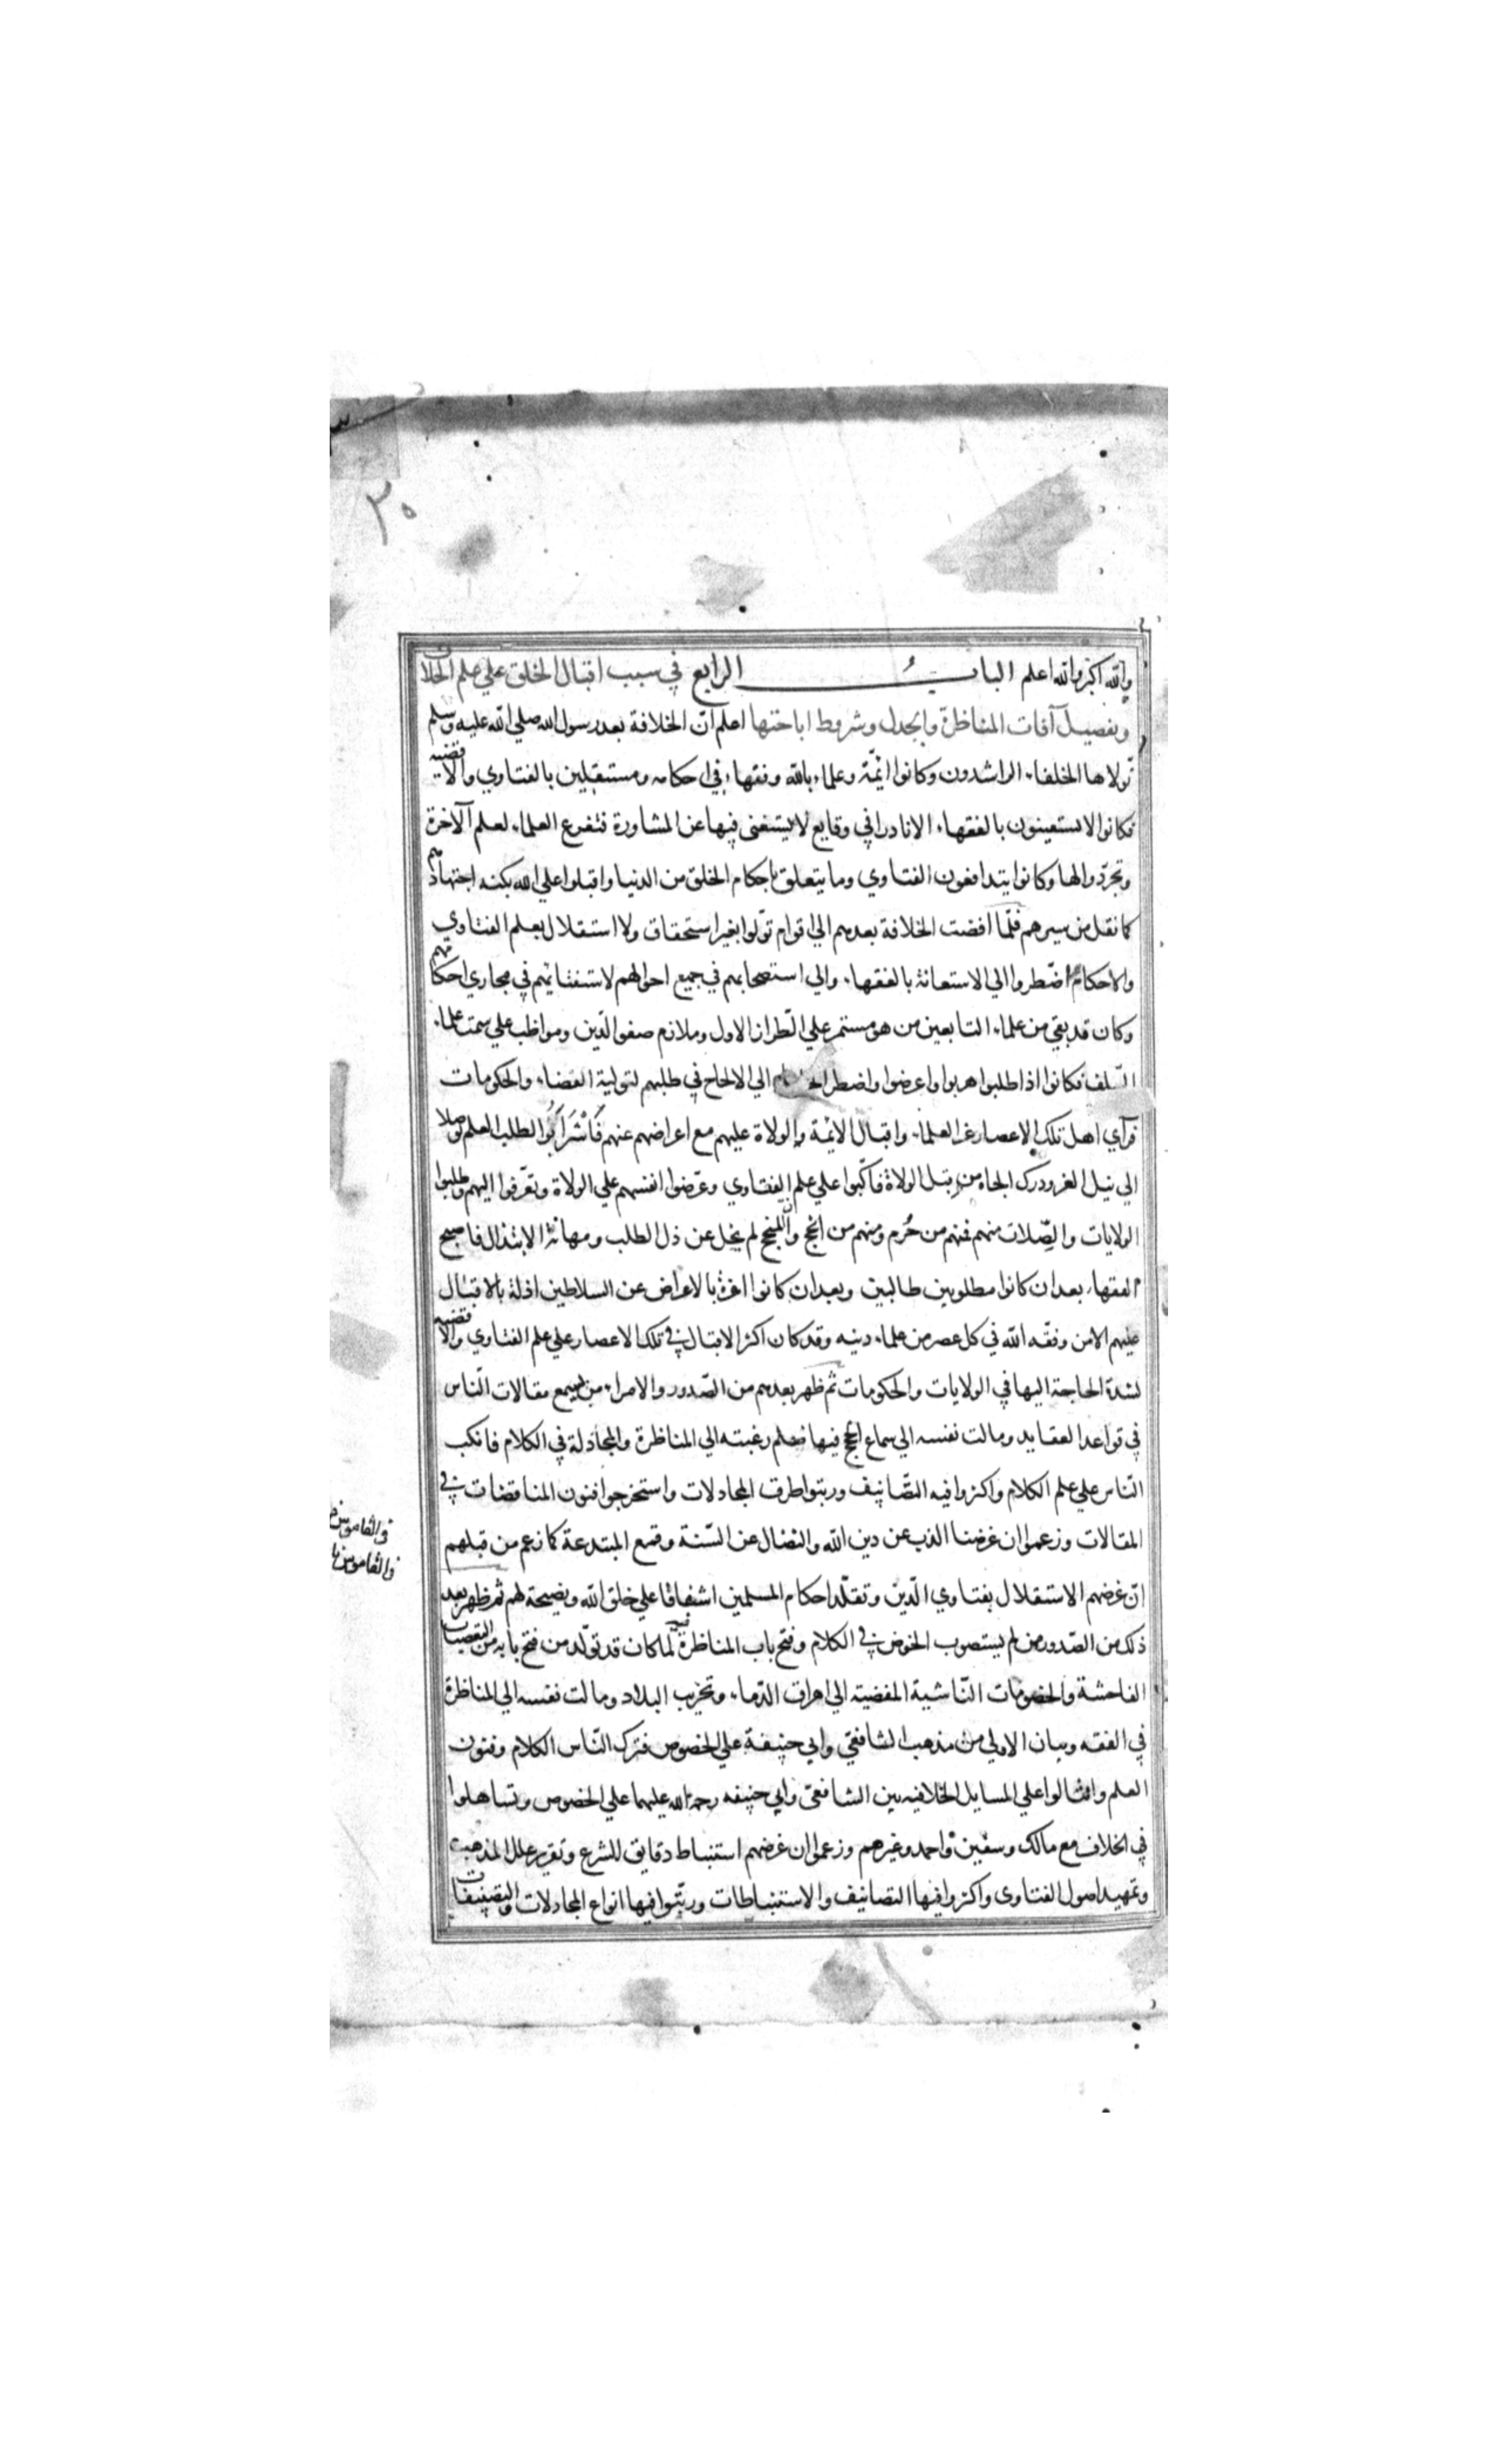 ٢٥
والله اكبر والله اعلم الباب الرابع في سبب اقبال الخلق علي علم الخلاف
وتفصيل آفات المناظرة والجدل وشروط اباحتها اعلم انّ الخلافة بعد رسول الله صلي الله عليه وسلم
تولاها الخلفاء الراشدون وكانوا ائمّة وعلماء بالله وفقهاء في احكامه ومستقلين بالفتاوي والاقضيه
فكانوا لا يستعينون بالفقهاء الا نادرا في وقايع لا يستغنى فيها عن المشاورة فتفرع العلماء لعلم الآخرة
وتجرّدوا لها وكانوا يتدافعون الفتاوي وما يتعلق باحكام الخلق من الدنيا واقبلوا علي الله بكنه اجتهادهم
كما نقل من سيرهم فلمّا افضت الخلافة بعدهم الي اقوام تولّوا بغير استحقاق ولا استقلال بعلم الفتاوي
والاحكام اضطروا الي الاستعانة بالفقهاء والي استصحابهم في جميع احوالهم لاستفتائهم في مجاري احكامهم
وكان قد بقي من علماء التابعين من هو مستمر علي الطراز الاول وملازم صفو الدّين ومواظب علي سمت علماء
السّلف فكانوا اذا طلبوا هربوا واعرضوا واضطر الي الالحاح في طلبهم لتولية القضاء والحكومات
فرآي اهل تلك الاعصار عز العلماء واقبال الائمة والولاة عليهم مع اعراضهم عنهم فَاشْرَأَبُّوا لطلب العلم توصلا
الي نيل العز ودرك الجاه من قبل الولاة فاكبّوا علي علم الفتاوي وعرّضوا انفسهم علي الولاة وتعرّفوا اليهم وطلبوا
الولايات والصِّلات منهم فمنهم من حُرم ومنهم من انجح والمنجح لم يخل عن ذل الطلب ومهانة الابتذال فاصبح
الفقهاء بعد ان كانوا مطلوبين طالبين وبعد ان كانوا اعزّة بالاعراض عن السلاطين اذلة بالاقبال
عليهم الا من وفقه الله في كل عصر من علماء دينه وقد كان اكثر الاقبال في تلك الاعصار علي علم الفتاوي والاقضيه
لشدة الحاجة اليها في الولايات والحكومات ثم ظهر بعدهم من الصّدور والامراء من يسمع مقالات النّاس
في قواعد العقايد ومالت نفسه الي سماع الحجج فيها فعلم رغبته الي المناظرة والمجادلة في الكلام فانكب
النّاس علي علم الكلام واكثروا فيه التصّانيف ورتبوا طرق المجادلات واستخرجوا فنون المناقضات في
المقالات وزعموا ان غرضنا الذب عن دين الله والنضال عن السّنة وقمع المبتدعة كما زعم من قبلهم
انّ غرضهم الاستقلال بفتاوي الدّين وتقلّد احكام المسلمين اشفاقا علي خلق الله ونصيحة لهم ثم ظهر بعد
ذلك من الصّدور من لم يستصوب الخوض في الكلام وفتح باب المناظرة فيه لما كان قد تولّد من فتح بابه من التعصبات
الفاحشة والخصومات النّاشية المفضية الي اهراق الدّماء وتخريب البلاد ومالت نفسه الي المناظرة
في الفقه وبيان الاولي من مذهب الشافعيّ وابي حنيفة علي الخصوص فترك النّاس الكلام وفنون
العلم وانثالوا علي المسايل الخلافيه بين الشافعيّ وابي حنيفه رحمة الله عليهما علي الخصوص وتساهلوا
في الخلاف مع مالك وسفين واحمد وغيرهم وزعموا ان غرضهم استنباط دقايق للشرع وتقرير علل المذهب
وتمهيد اصول الفتاوى واكثروا فيها التصانيف والاستنباطات ورتّبوا فيها انواع المجادلات والتصنيفات